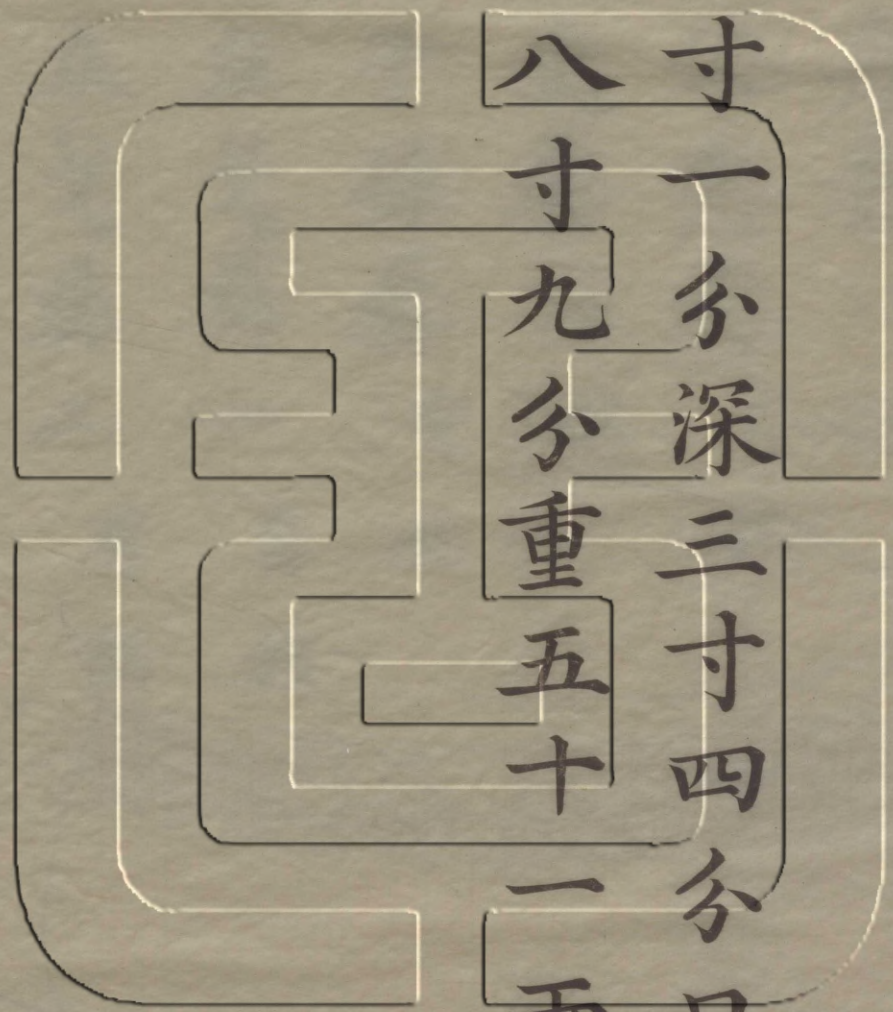 寸一分深三寸四分口
八寸九分重五十一兩